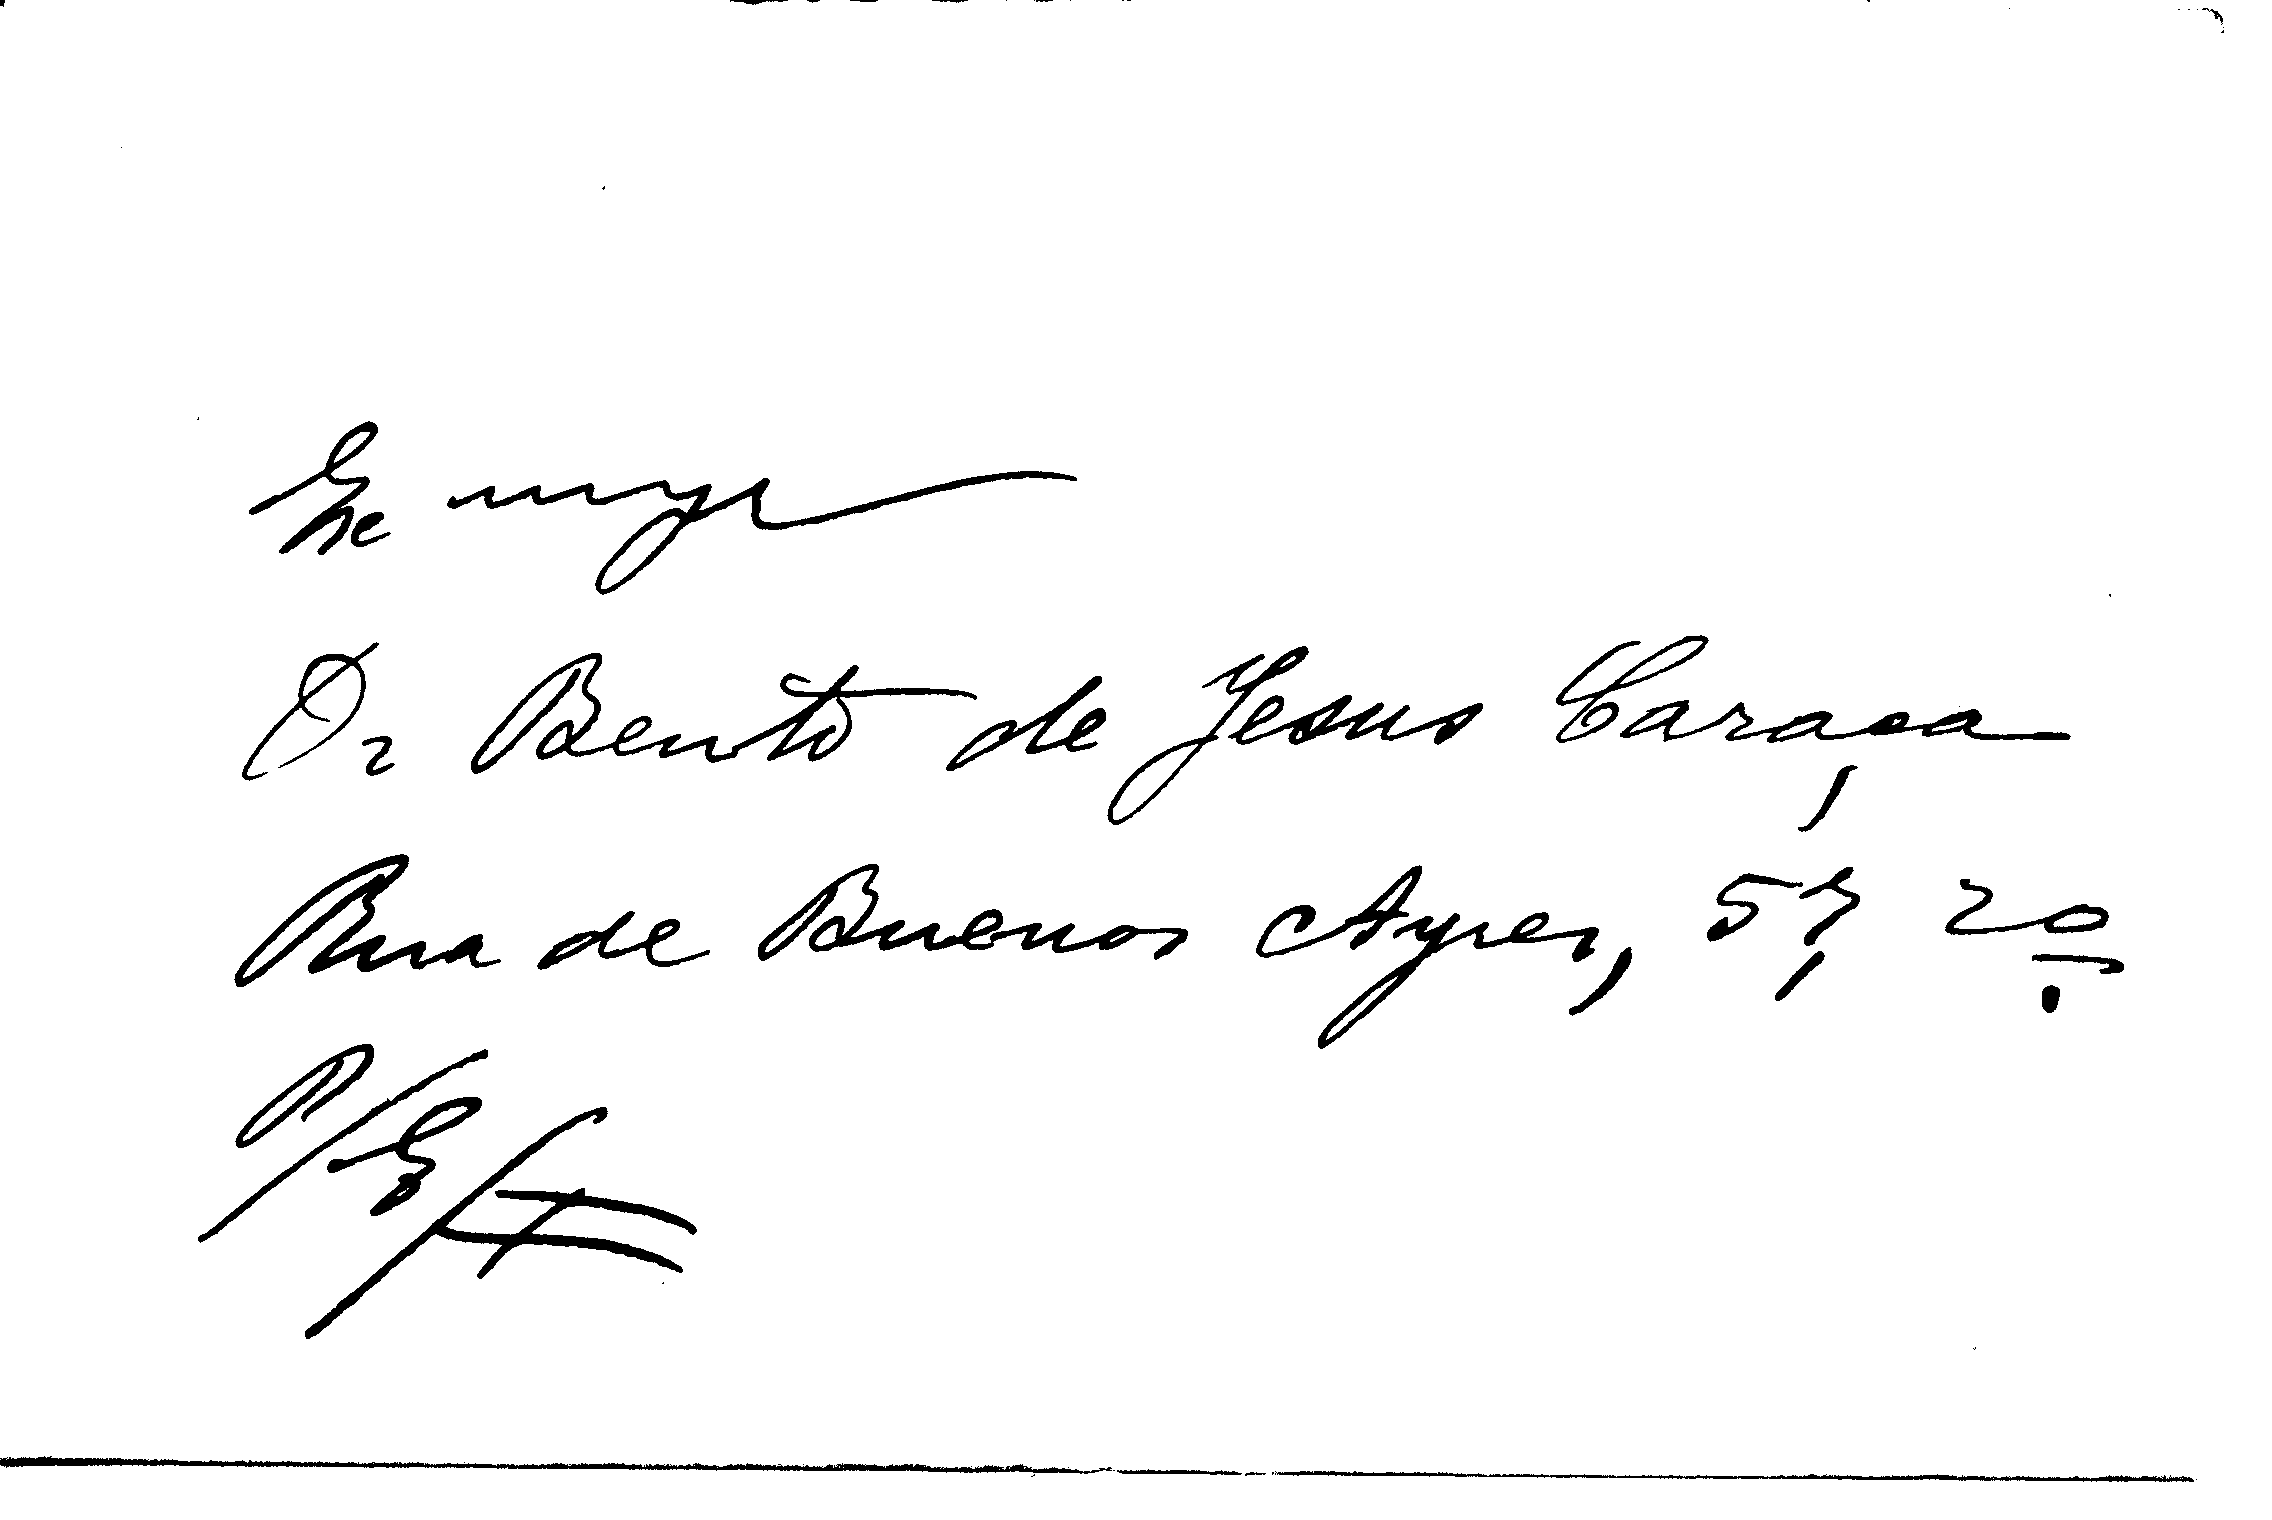 Dr Bento de Jesus Caraça
Rua de Buenos Ayres, 57, 2o
P/E/